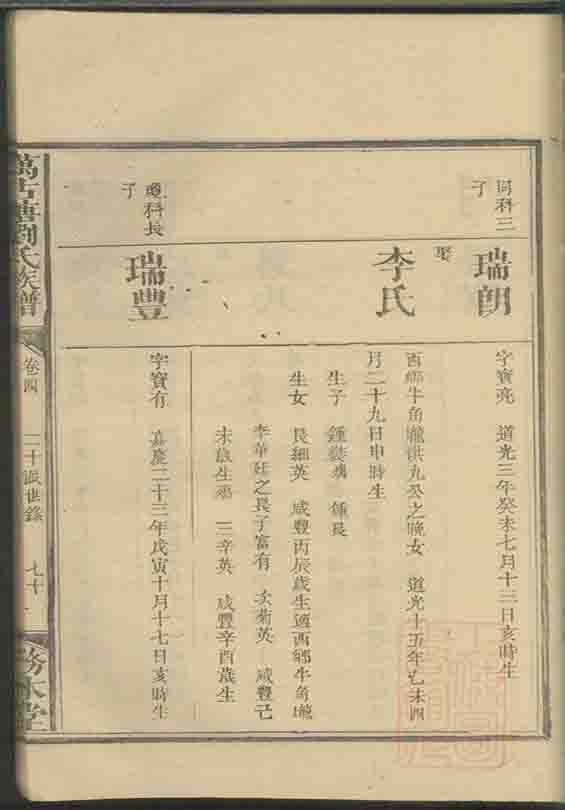 同科三
子
瑞朗
字寶亮 道光三年癸未七月十三日亥時生
娶
李氏
西鄉牛角壠洪九公之晚女 道光十五年乙未四
月二十九日申時生
生子 鍾 鍾長
生女 長細英 咸豐丙辰歲生適西鄉牛角壠
李華廷之長子富有 次菊英 咸豐己
未歲生 三辛英 咸豐辛酉歲生
瓊科長
子
瑞豐
字寶有 嘉慶二十三年戊寅十月十七日亥時生
萬古塘劉氏族譜
卷四 二十派世錄 七十
務本堂